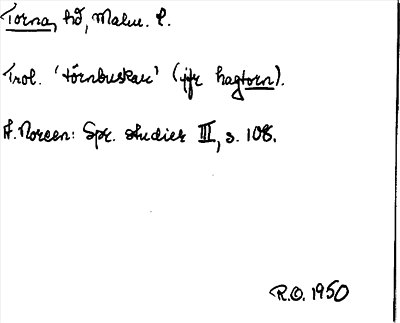 Torna, hd, Malm. l.
Trol. 'törnbuskar' (jfr hagtorn).
A. Noreen: Spr. studier III, s. 108.
R.O. 1950